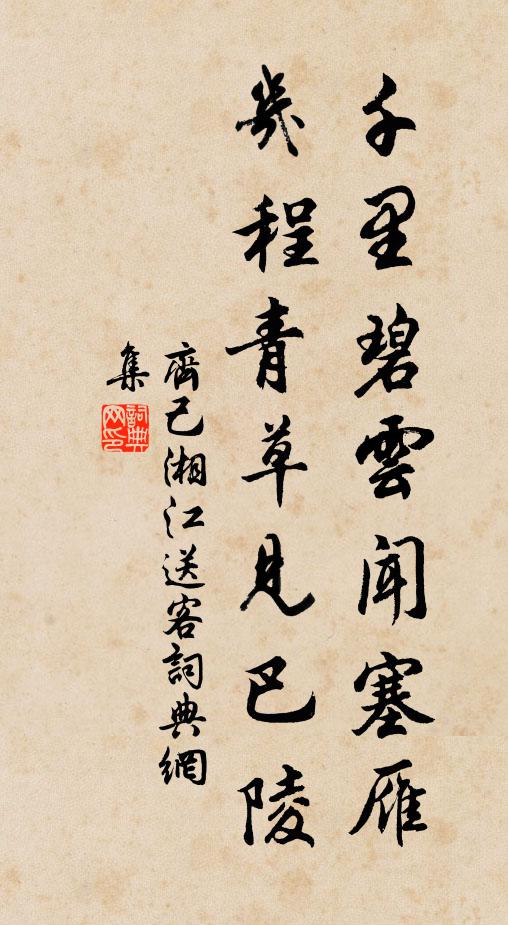 千里碧雲聞塞雁
幾程青草見巴陵
齊己湘江送客詞典網
集
詞典
网印